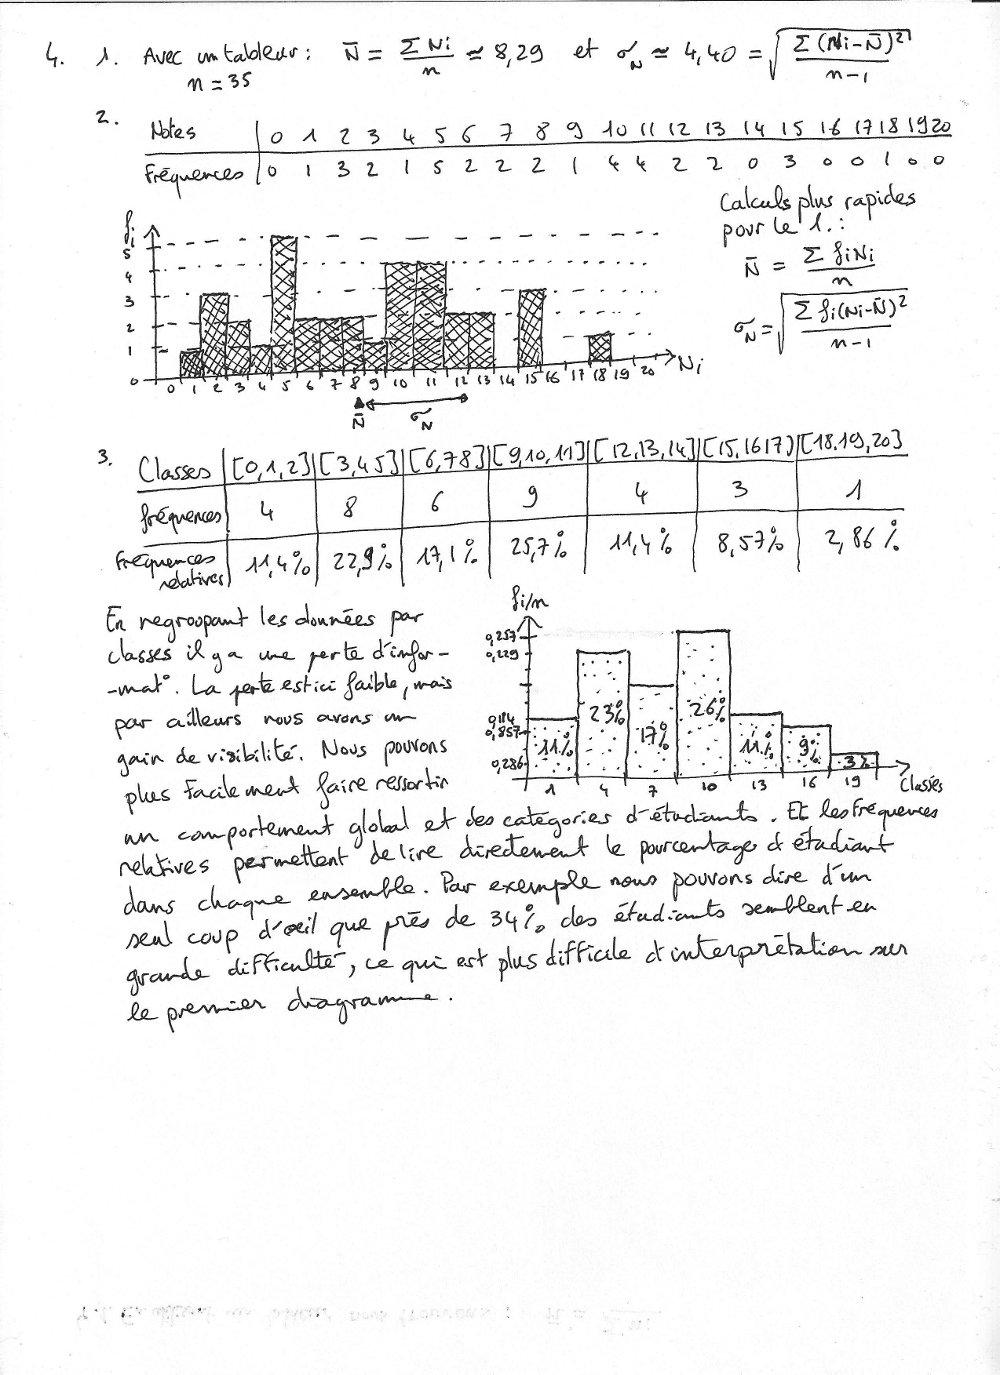 4. 1. Avec un tableur : N̄ = ΣNi / n ≃ 8,29 et σN ≃ 4,40 = √(Σ(Ni-N̄)² / n-1)
n = 35
2.
Notes 0 1 2 3 4 5 6 7 8 9 10 11 12 13 14 15 16 17 18 19 20
Fréquences 0 1 3 2 1 5 2 2 2 1 4 4 2 2 0 3 0 0 1 0 0
Calculs plus rapides
pour le 1. :
N̄ = Σ fiNi / n
σN = √(Σ fi(Ni-N̄)² / n-1)
fi
5
4
3
2
1
0
0 1 2 3 4 5 6 7 8 9 10 11 12 13 14 15 16 17 18 19 20 Ni
N̄ σN
3.
Classes [0,1,2] [3,4 5] [6,7 8] [9,10,11] [12,13,14] [15,16 17] [18,19,20]
fréquences 4 8 6 9 4 3 1
Fréquences relatives 11,4% 22,9% 17,1% 25,7% 11,4% 8,57% 2,86%
En regroupant les données par
classes il y a une perte d'infor-
-mat°. La perte est ici faible, mais
par ailleurs nous avons un
gain de visibilité. Nous pouvons
plus facilement faire ressortir
un comportement global et des catégories d'étudiants. Et les fréquences
relatives permettent de lire directement le pourcentage d'étudiant
dans chaque ensemble. Par exemple nous pouvons dire d'un
seul coup d'oeil que près de 34% des étudiants semblent en
grande difficulté, ce qui est plus difficile d'interprétation sur
le premier diagramme.
fi/n
0,257
0,229
0,114
0,857
0,286
11% 23% 17% 26% 11% 9% 3%
1 4 7 10 13 16 19 Classes